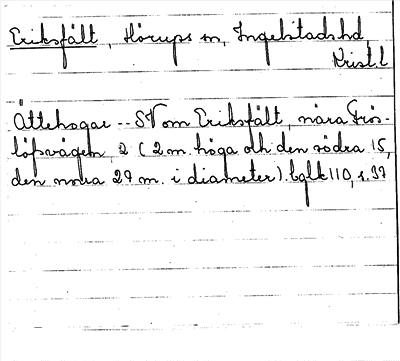 Eriksfält, Hörups sn, Ingelstads hd
Krist. l
Ättehögar -- SV om Eriksfält, nära Frös-
löfsvägen, 2 (2 m. höga och den södra 15,
den norra 27 m. i diameter). bglk 110, s. 37